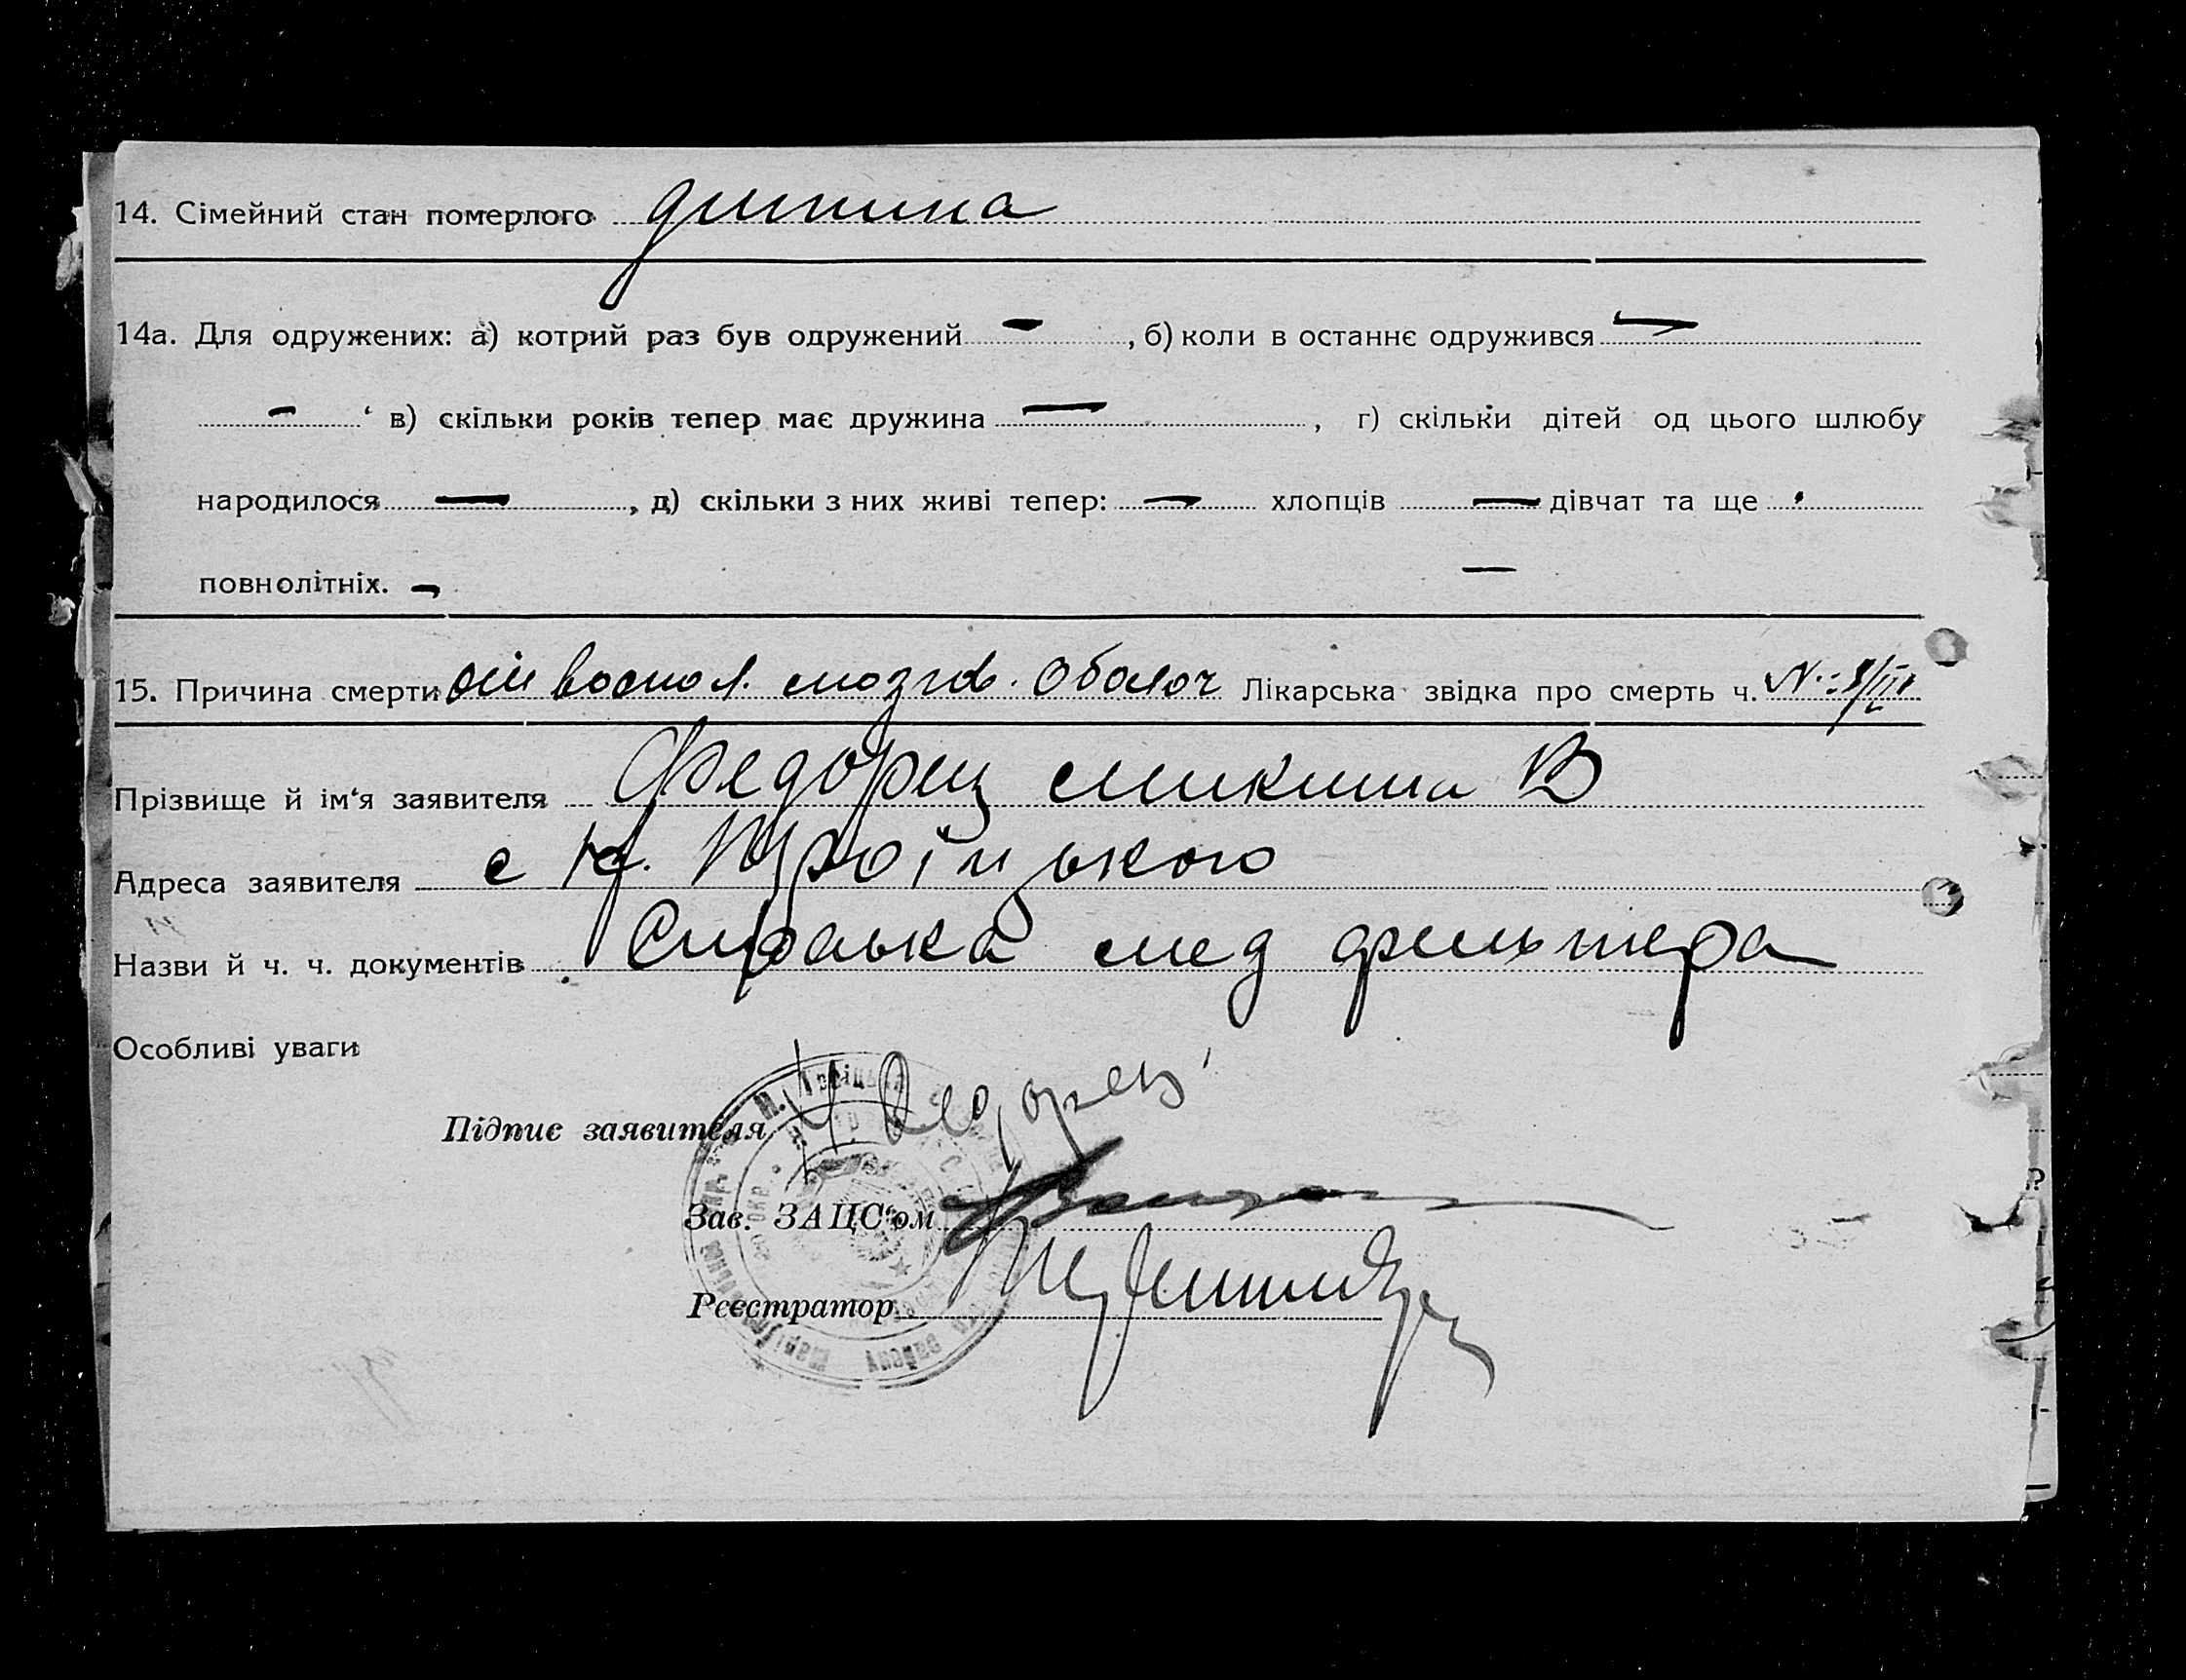 14. Сімейний стан померлого дитина
14а. Для одружених: а) котрий раз був одружений — , б) коли в останнє одружився —
— ‘ в) скільки років тепер має дружина — , г) скільки дітей од цього шлюбу
народилося — , д) скільки з них живі тепер: — хлопців — дівчат та ще
повнолітніх. — —
15. Причина смерти от воспол. мозгов. оболоч Лікарська звідка про смерть ч. N: 8/III
Прізвище й ім‘я заявителя Федорец Микита В
Адреса заявителя с Троїцького
Назви й ч. ч. документів Справка мед фельтера
Особливі уваги
Підпис заявителя Федорец
Зав. ЗАЦС‘ом
Реєстратор